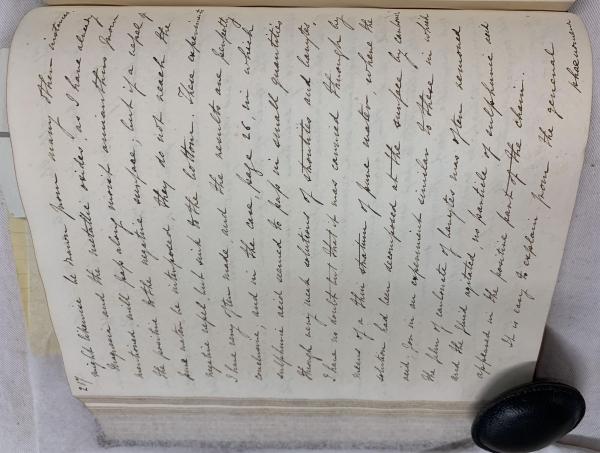 27
might likewise be drawn from many other instances.
Magnesia and the metallic oxides, as I have already
mentioned will pass along moist amianthus from
the positive to the negative surface; but if a vessel of
pure water be interposed, they do not reach the
negative vessel but sink to the bottom. These experiments
I have very often made and the results are perfectly
conclusive; and in the case, page 26, in which
sulphuric acid seemed to pass in small quantities
through very weak solutions of strontites and barytes,
I have no doubt but that it was carried through by
means of a thin stratum of pure water, where the
solution had been decomposed at the surface by carbonic
acid; for in an experiment similar to these in which
the film of carbonate of barytes was often removed
and the fluid agitated, no particle of sulphuric acid
appeared in the positive part of the chain.
It is easy to explain from the general
phænomena